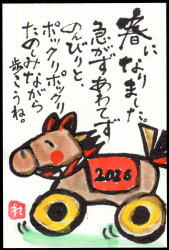 春になりました。
急がずあわてず
のんびりと、
ポックリポックリ
たのしみながら
歩こうね。
2026